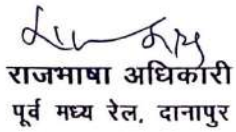 राजभाषा अधिकारी
पूर्व मध्य रेल, दानापुर